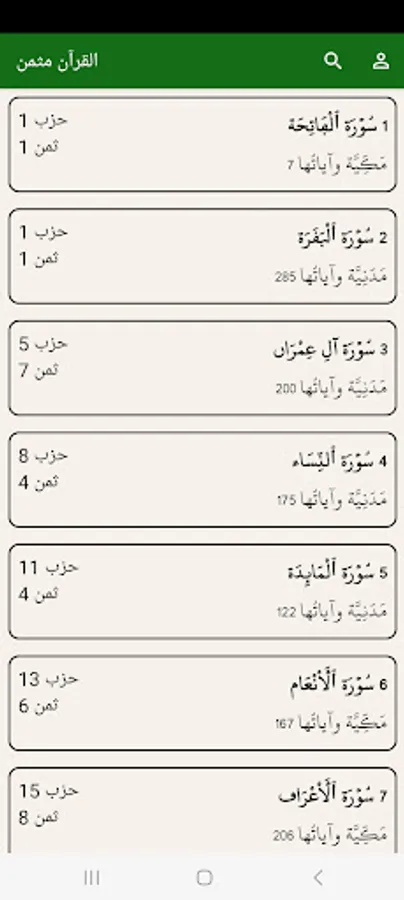 القرآن مثمن
1 سُورَة اُلْفَاتِحَة
مَكِيَّة وآياتُها 7
حزب 1
ثمن 1
2 سُورَة اُلْبَقَرَة
مَدَنِيَّة وآياتُها 285
حزب 1
ثمن 1
3 سُورَة آلِ عِمْرَان
مَدَنِيَّة وآياتُها 200
حزب 5
ثمن 7
4 سُورَة اُلنِّسَاء
مَدَنِيَّة وآياتُها 175
حزب 8
ثمن 4
5 سُورَة اُلْمَايِدَة
مَدَنِيَّة وآياتُها 122
حزب 11
ثمن 4
6 سُورَة اُلْأَنْعَام
مَكِّيَّة وآياتُها 167
حزب 13
ثمن 6
7 سُورَة اُلْأَعْرَاف
مَكِّيَّة وآياتُها 206
حزب 15
ثمن 8